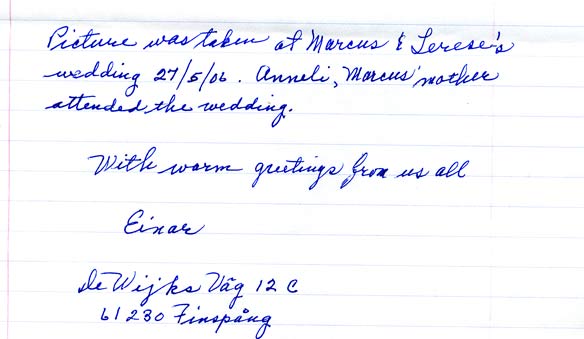 Picture was taken at Marcus & Terese's
wedding 27/5/06. Anneli, Marcus' mother
attended the wedding.
With warm greetings from us all
Einar
De Wijks Väg 12 C
61230 Finspång